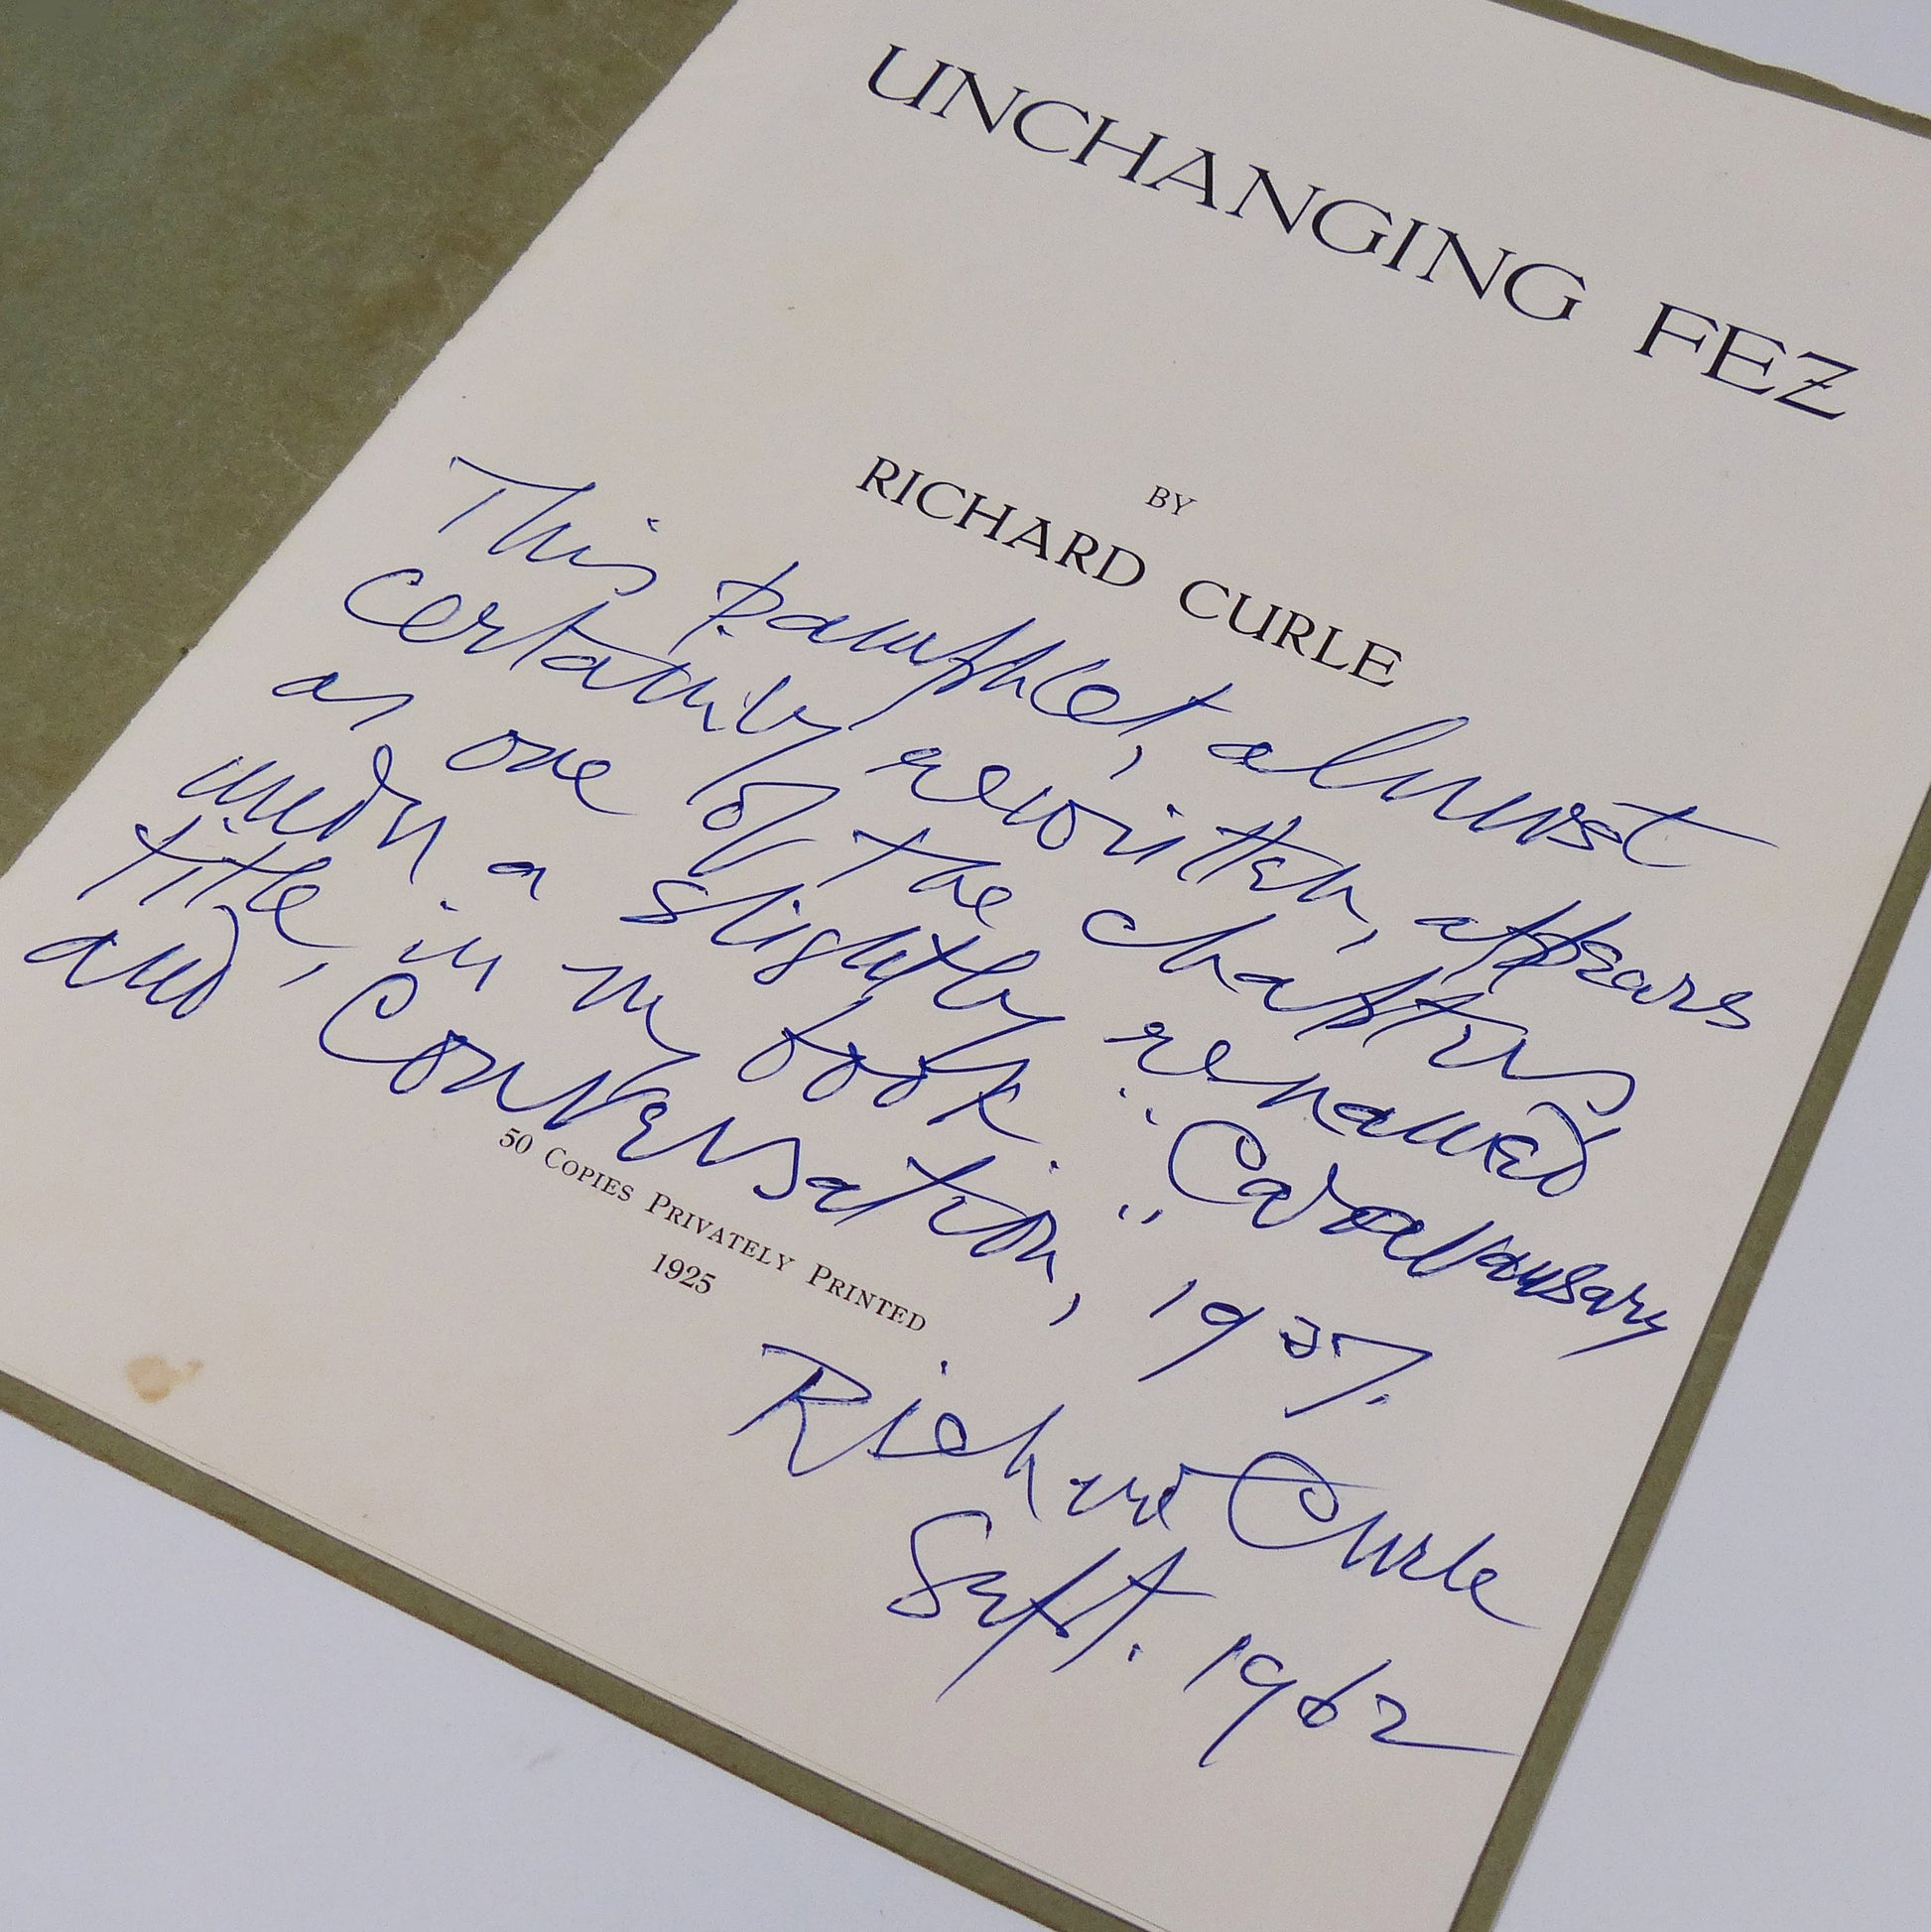 UNCHANGING FEZ
BY
RICHARD CURLE
This pamphlet, almost
certainly rewritten, appears
as one of the chapters
under a slightly renamed
title, in my book "Caravansary
and Conversation," 1937.
50 COPIES PRIVATELY PRINTED
1925
Richard Curle
Sept. 1962